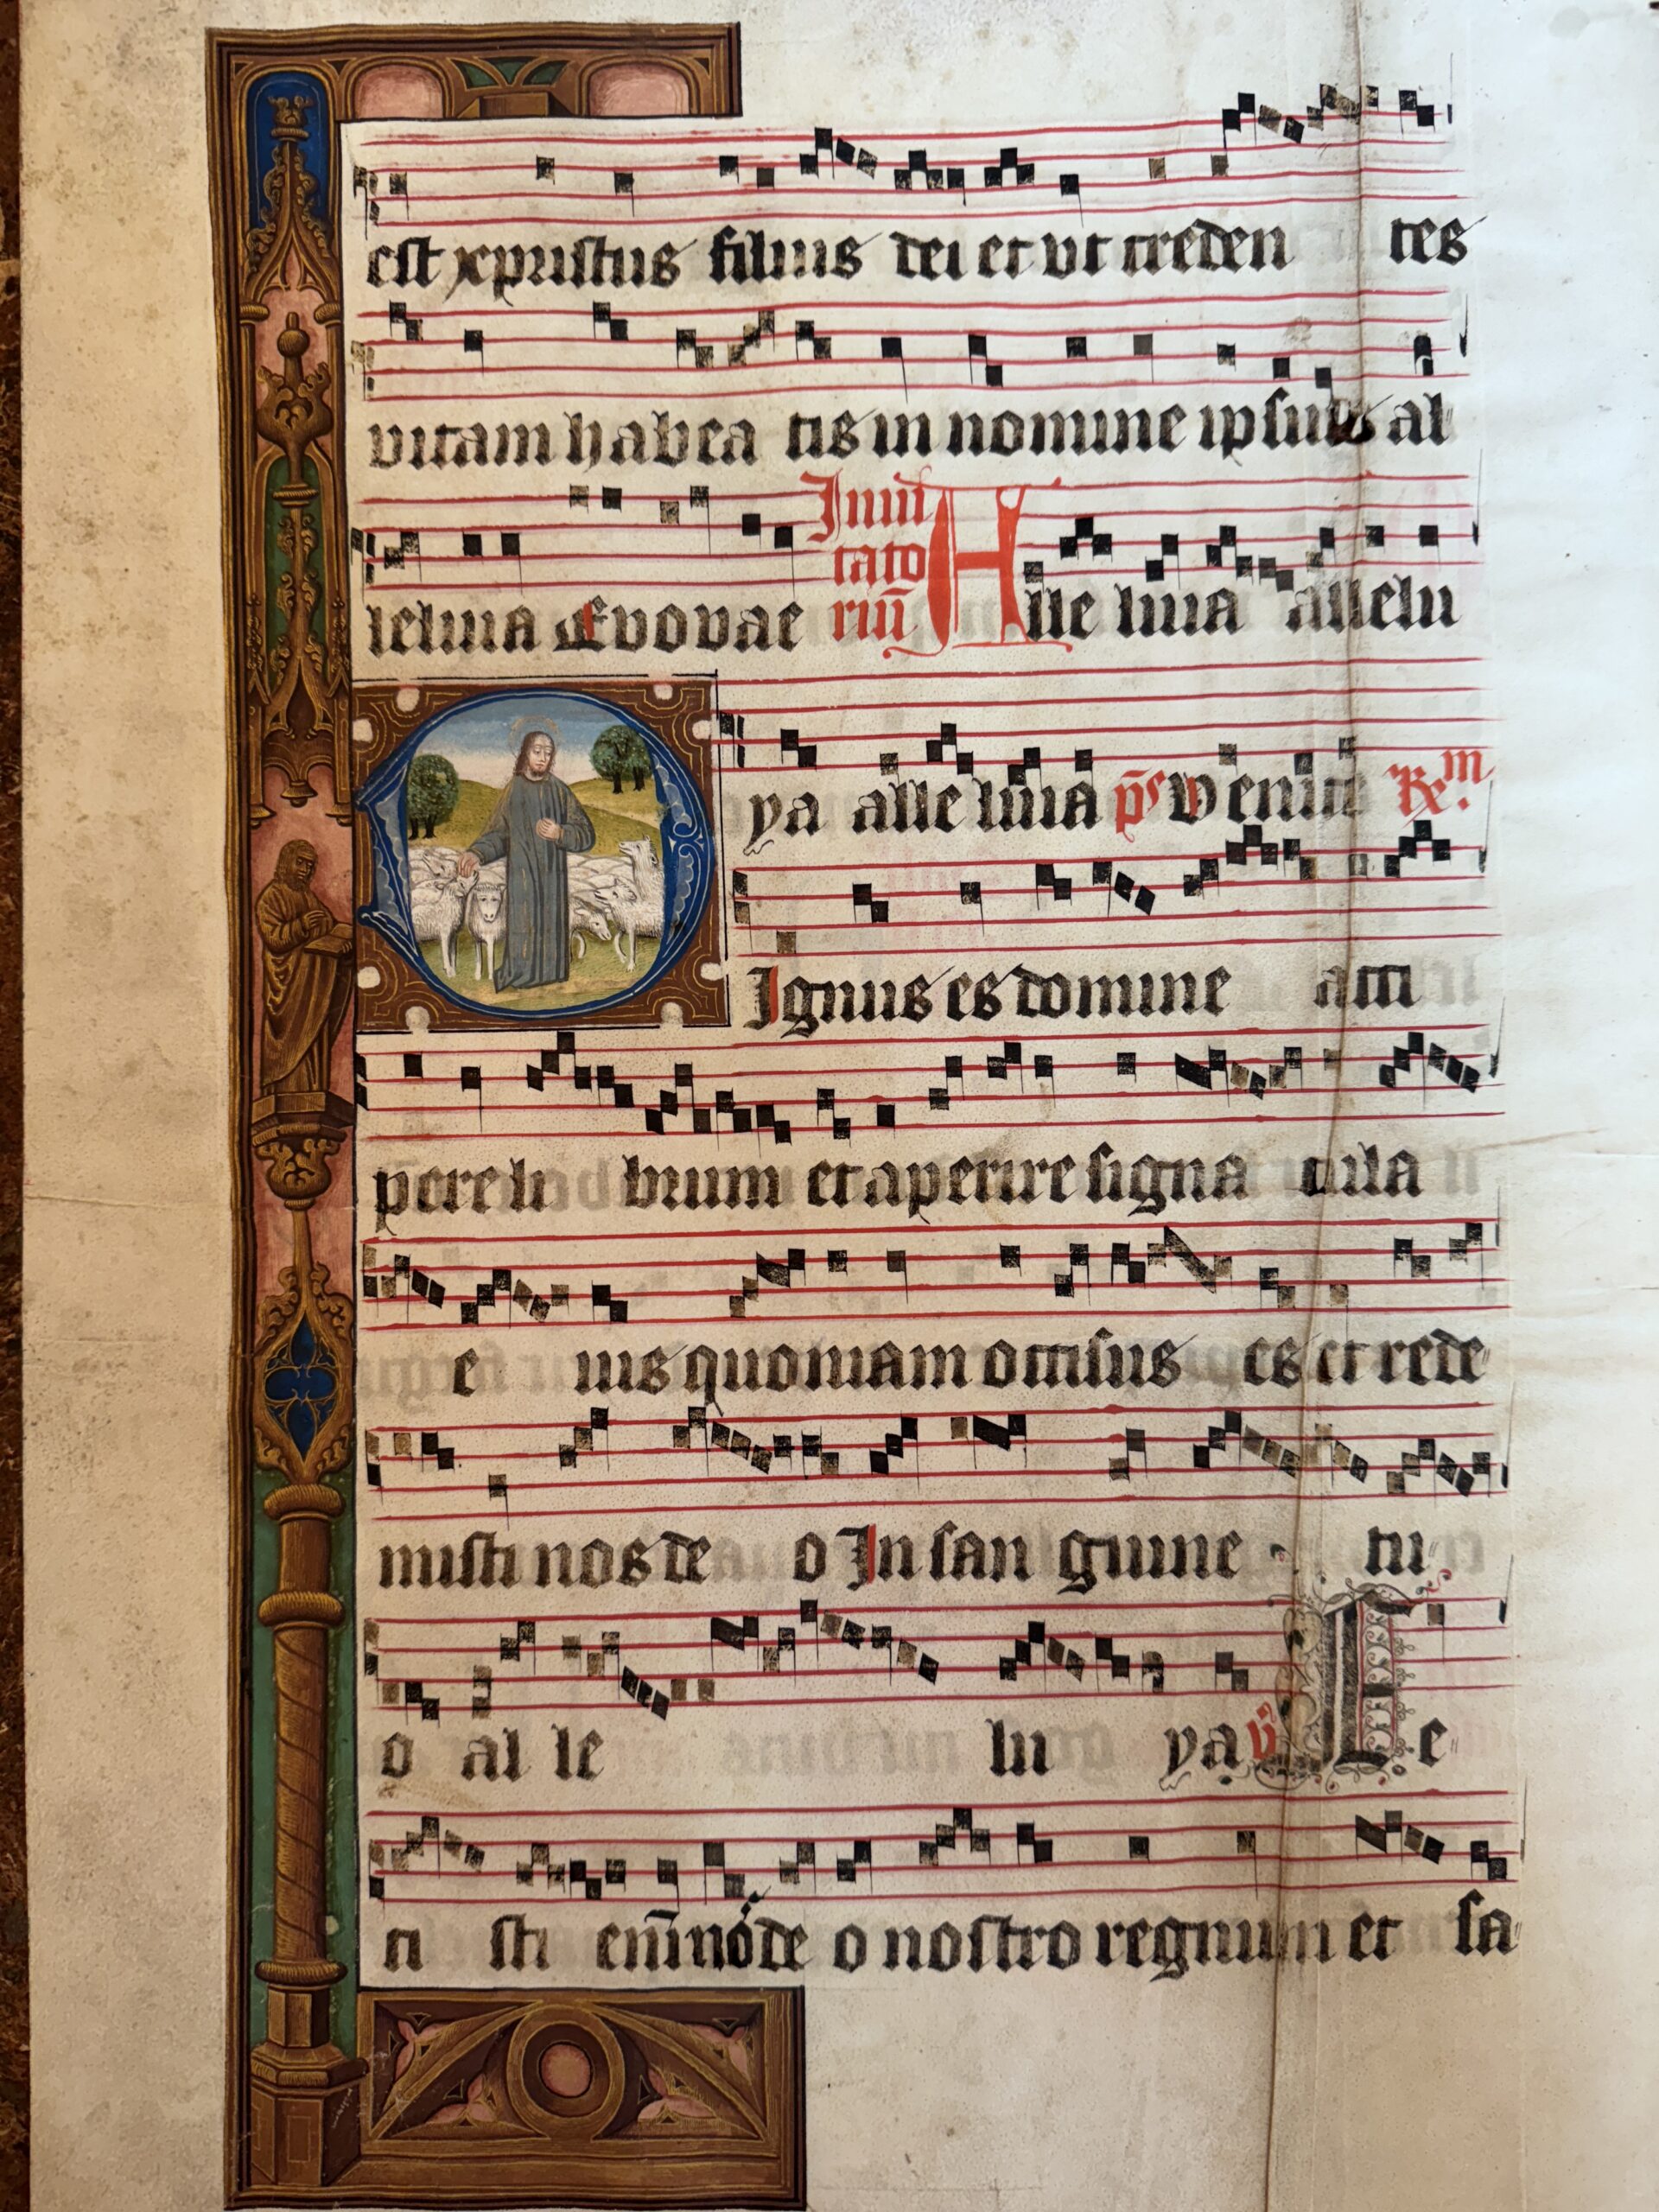 est xpristus filius dei et ut creden tes
vitam habea tis in nomine ipsius al
leluia Evovae Inui tato riū Alle luia allelu
ya alle luia ps Venite Rm
Ignus es domine acci
pere li brum et aperire signa cula
e ius quoniam occisus es et rede
misti nos de o In san guine tu
o al le lu ya v Fe
ci sti em̄ nos de o nostro regnum et sa